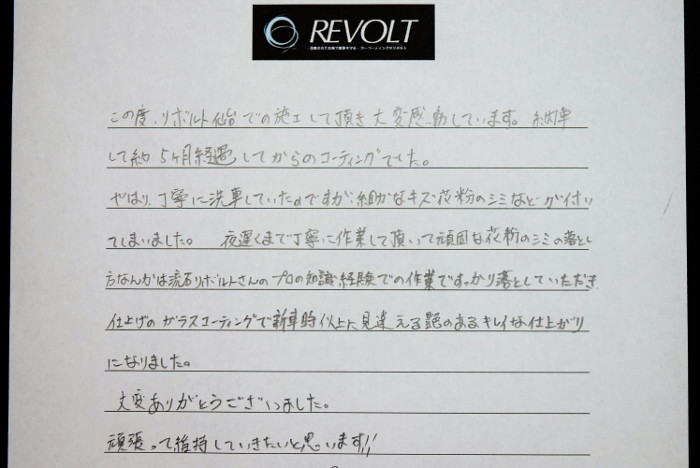 REVOLT
この度、リボルト仙台での施工して頂き大変感動しています。納車
して約5ヶ月経過してからのコーティングでした。
やはり、丁寧に洗車していたのですが、細かなキズ花粉のシミなどが付い
てしまいました。 夜遅くまで丁寧に作業して頂いて頑固な花粉のシミの落とし
方なんかは流石リボルトさんのプロの知識、経験での作業ですっかり落としていただき
仕上げのガラスコーティングで新車時以上に見違える艶のあるキレイな仕上がり
になりました。
大変ありがとうございました。
頑張って維持していきたいと思います!!